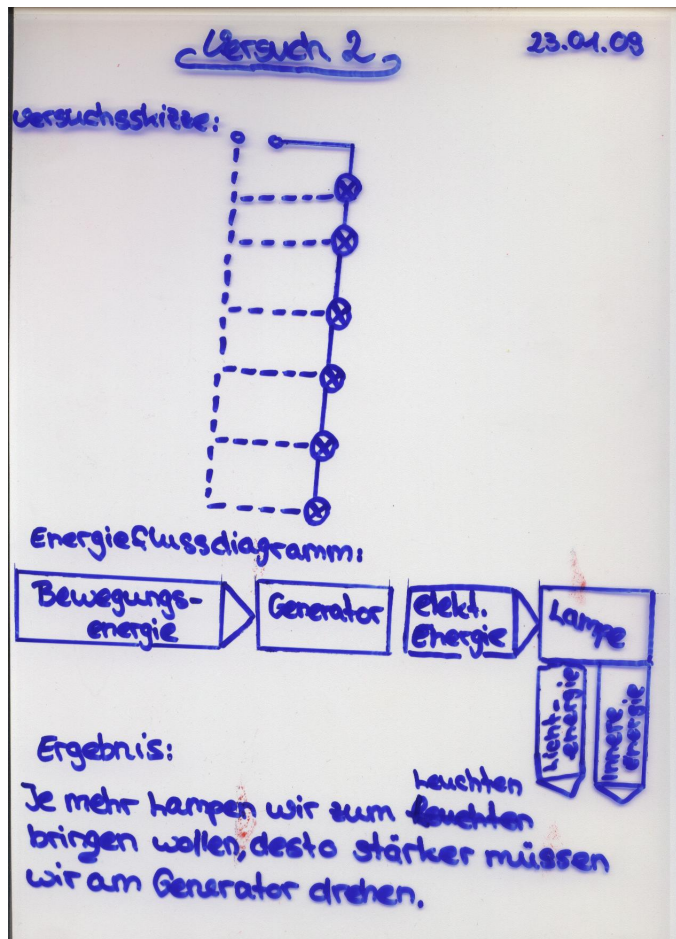 Versuch 2
23.01.09
Versuchsskizze:
Energieflussdiagramm:
Bewegungs-
energie
Generator
elekt.
Energie
Lampe
Licht-
energie
Innere
energie
Ergebnis:
Je mehr Lampen wir zum Leuchten
bringen wollen, desto stärker müssen
wir am Generator drehen.